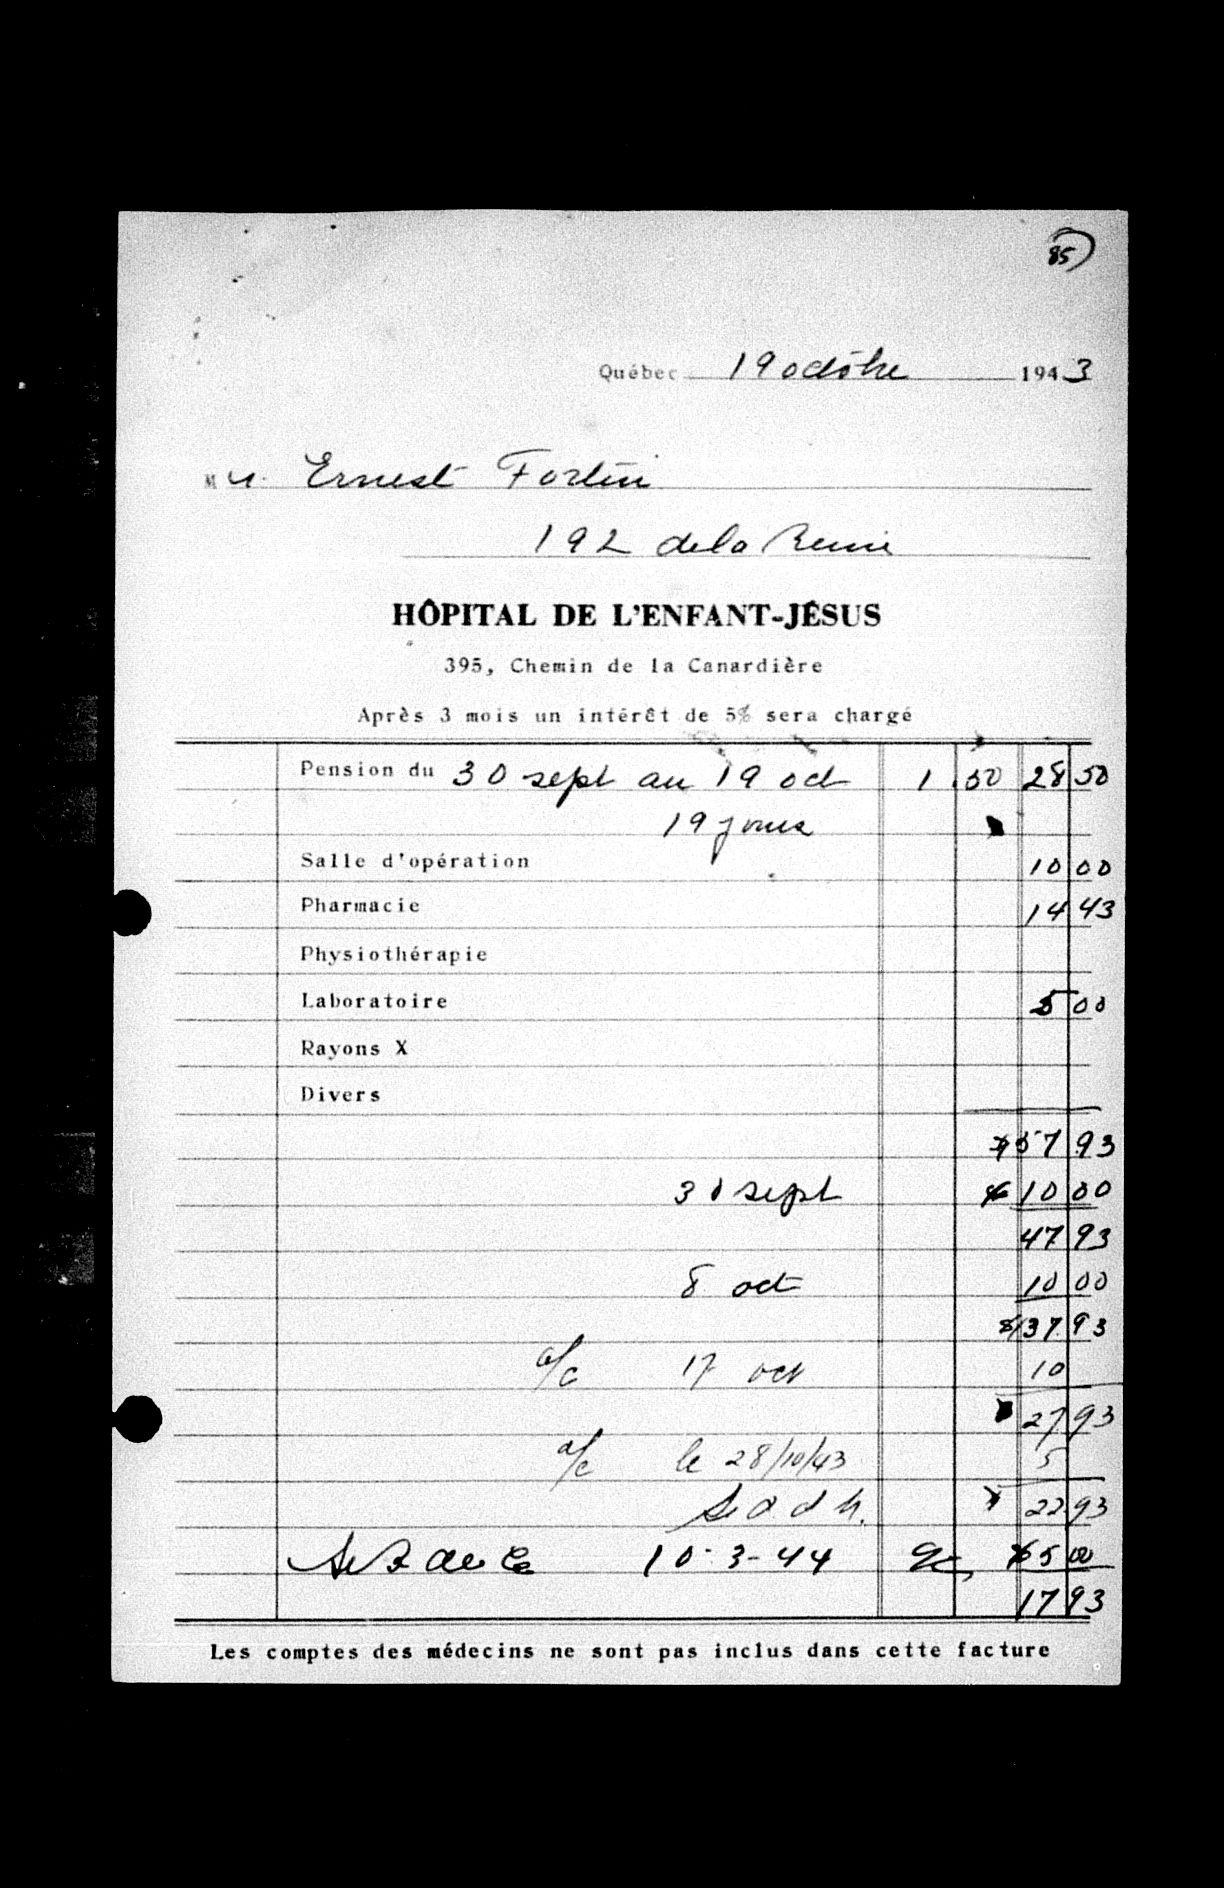 85
Québec 19 octobre 1943
Mr. Ernest Fortin
192 de la Reine
HÔPITAL DE L'ENFANT-JÉSUS
395, Chemin de la Canardière
Après 3 mois un intérêt de 5% sera chargé
Pension du 30 sept au 19 oct 1.50 28 50
19 jours
Salle d'opération 10 00
Pharmacie 14 43
Physiothérapie
Laboratoire 5 00
Rayons X
Divers
57 93
30 sept 10 00
47 93
8 oct 10 00
37 93
a/c 17 oct 10
27 93
a/c le 28/10/43 5
22 93
10-3-44 5 00
17 93
Les comptes des médecins ne sont pas inclus dans cette facture